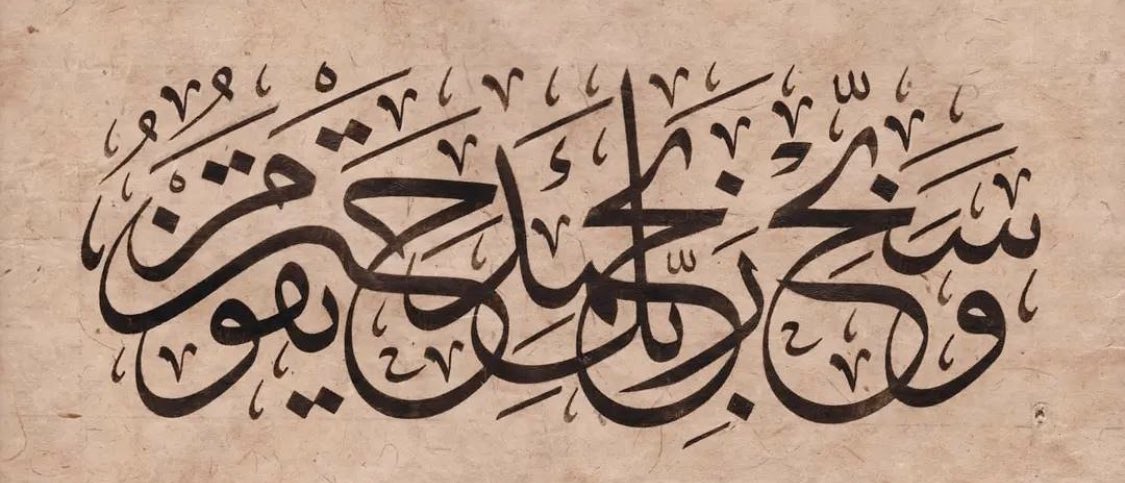 وَسَبِّحْ بِحَمْدِ رَبِّكَ حِينَ تَقُومُ